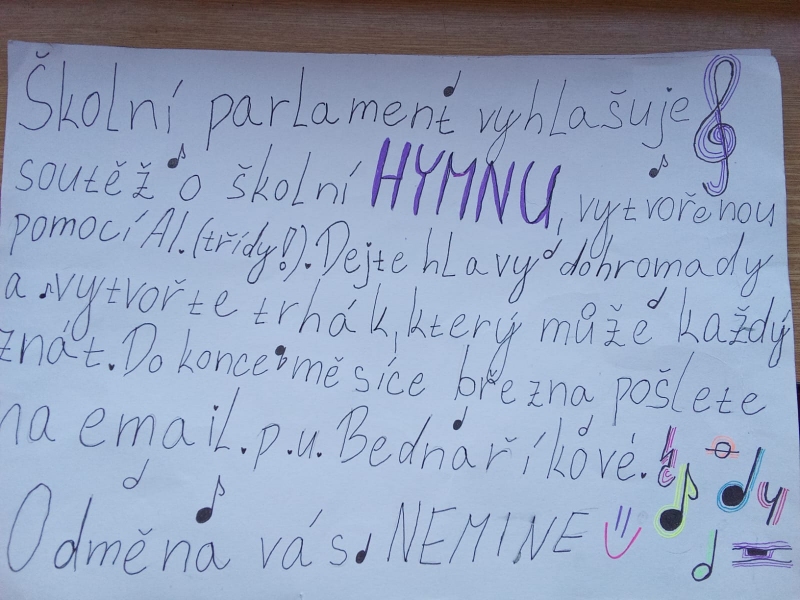 Školní parlament vyhlašuje
soutěž o školní HYMNU, vytvořenou
pomocí AI. (třídy!). Dejte hlavy dohromady
a vytvořte trhák, který může každý
znát. Do konce měsíce března pošlete
na email. p. u. Bednaříkové.
Odměna vás NEMINE